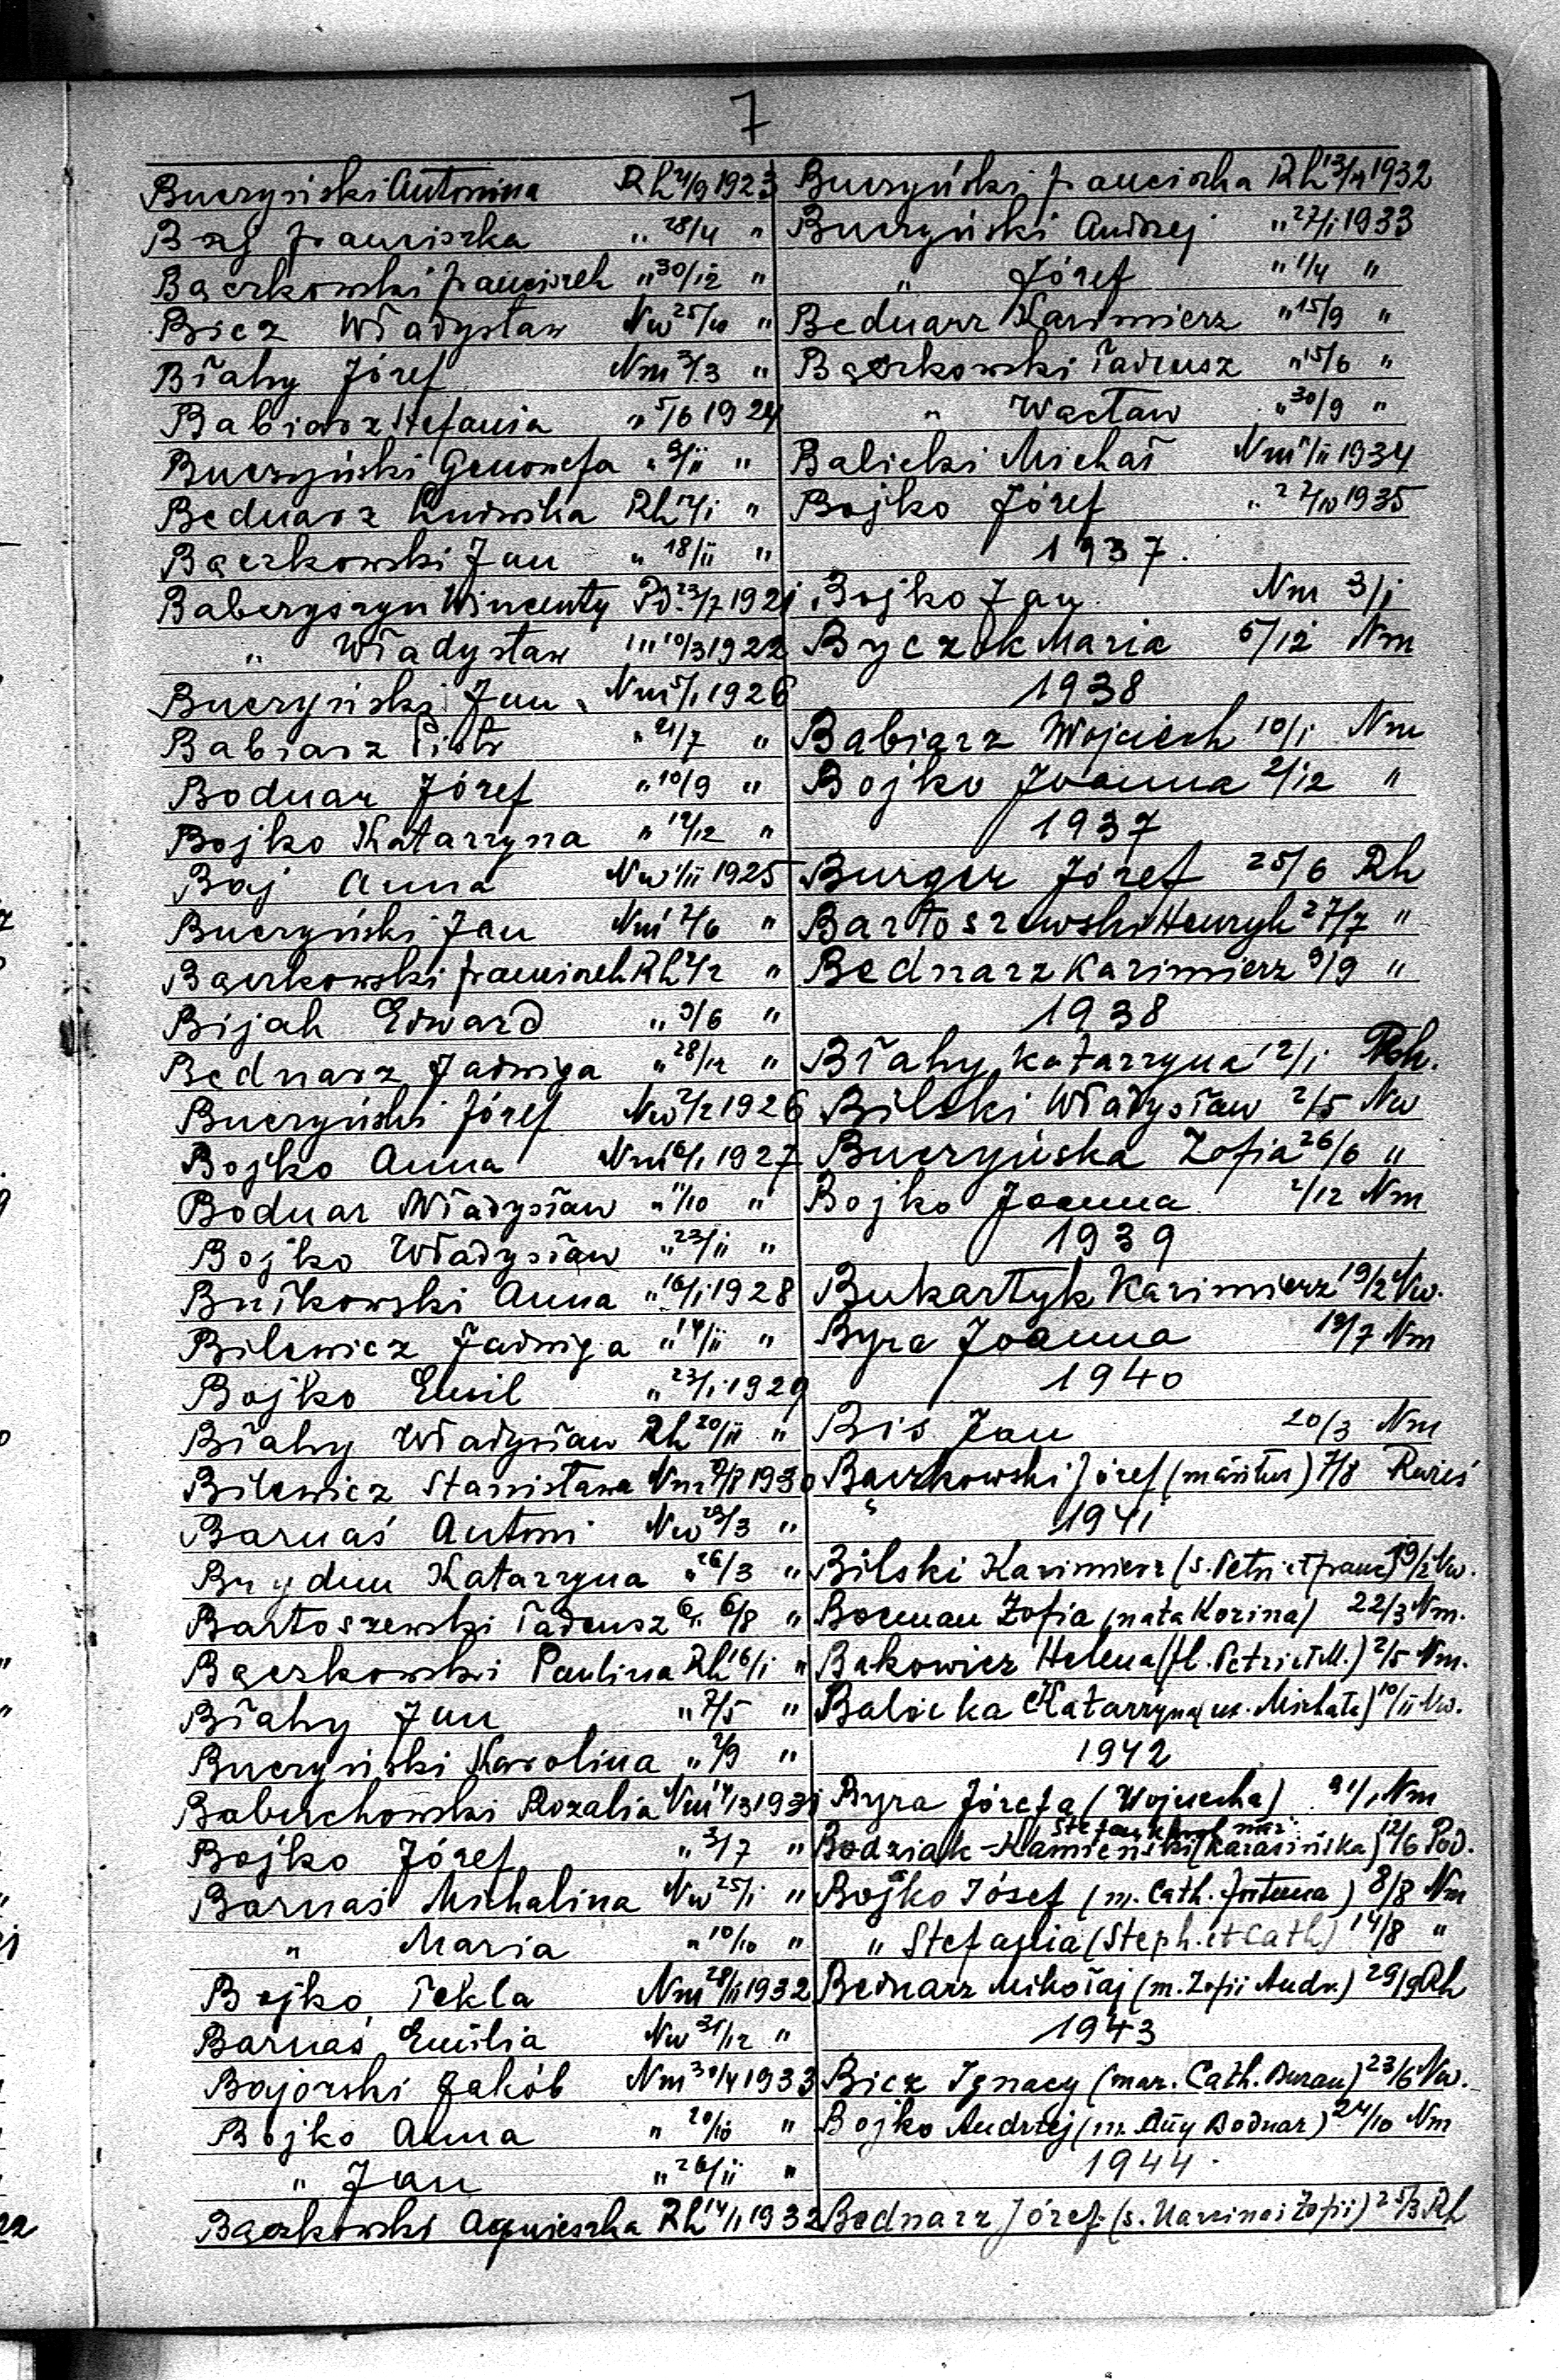 7
Buczyński Antonina Rh 4/9 1923
Baj Franciszka " 28/4 "
Bączkowski Franciszek " 30/12 "
Bicz Władysław Nw 25/10 "
Białny Józef Nm 3/3 "
Babiarz Stefania " 5/6 1924
Buczyński Genowefa " 9/11 "
Bednarz Ludwika Rh 14/1 "
Bączkowski Jan " 18/11 "
Baberyszyn Wincenty Pd. 23/7 1921
" Władysław " 10/3 1922
Buczyński Jan Nm 5/1 1926
Babiarz Piotr " 21/7 "
Bodnar Józef " 10/9 "
Bojko Katarzyna " 12/12 "
Baj Anna Nw 1/11 1925
Buczyński Jan Nm 2/6 "
Bączkowski Franciszek Rh 2/2 "
Bijak Edward " 9/6 "
Bednarz Jadwiga " 28/12 "
Buczyński Józef Nw 2/2 1926
Bojko Anna Nm 6/1 1927
Bodnar Władysław " 11/10 "
Bojko Władysław " 23/11 "
Bułkowski Anna " 16/1 1928
Bilewicz Jadwiga " 14/11 "
Bojko Emil " 23/1 1929
Białny Władysław Rh 20/11 "
Bilewicz Stanisława Nm 1930
Barnaś Antoni Nw 23/3 "
Katarzyna " 26/3 "
Bartoszewski Tadeusz 6/8 "
Bączkowski Paulina Rh 16/1 "
Białny Jan " 7/5 "
Buczyński Karolina " 2/9 "
Babuchowski Rozalia Nm 14/3 1931
Bojko Józef " 3/7 "
Barnaś Michalina Nw 25/1 "
" Maria " 10/10 "
Bojko Tekla Nm 28/11 1932
Barnaś Emilia Nw 31/12 "
Bajorski Jakób Nm 30/4 1933
Bojko Anna " 20/10 "
" Jan " 26/11 "
Bączkowski Agnieszka Rh 14/1 1932
Buczyński Franciszka Rh 13/4 1932
Buczyński Andrzej " 27/1 1933
" Józef " 1/4 "
Bednarz Kazimierz " 15/9 "
Bączkowski Tadeusz " 15/6 "
" Wacław " 30/9 "
Balicki Michał Nm 1/11 1934
Bojko Józef " 27/10 1935
1937.
Bojko Jan Nm 3/1
Byczek Maria 5/12 Nm
1938
Babiarz Wojciech 10/1 Nm
Bojko Joanna 2/12 "
1937
Burger Józef 25/6 Rh
Bartoszewski Henryk 27/7 "
Bednarz Kazimierz 9/9 "
1938
Białny Katarzyna 12/1 Rh.
Bilski Władysław 2/5 Nw
Buczyńska Zofia 26/6 "
Bojko Joanna 2/12 Nm
1939
Bukartyk Kazimierz 19/2 Nw.
Byra Joanna 19/7 Nm
1940
Bis Jan 20/3 Nm
Bączkowski Józef (maritus) 7/8
1941
Bilski Kazimierz (s. Petri et Franc) 19/2 Nw.
Bocman Zofia (nata Kozina) 22/3 Nm.
Bakowicz Helena (fl. Petri et M.) 2/5 Nm.
Balicka Katarzyna (ux. Michała) 10/11 Nw.
1942
Byra Józefa (Wojciecha) 31/1 Nm
Bodziak-Kamieński (Karasińska) 12/6 Pod.
Bojko Józef (m. Cath. Fortuna) 8/8 Nm
" Stefania (Steph. et Cath) 14/8 "
Bednarz Mikołaj (m. Zofii Andr.) 29/9 Rh
1943
Bicz Ignacy (mar. Cath. Buran) 23/6 Nw.
Bojko Andrzej (m. Anny Bodnar) 24/10 Nm
1944.
Bednarz Józef (s. Marcina i Zofii) 25/3 Rh